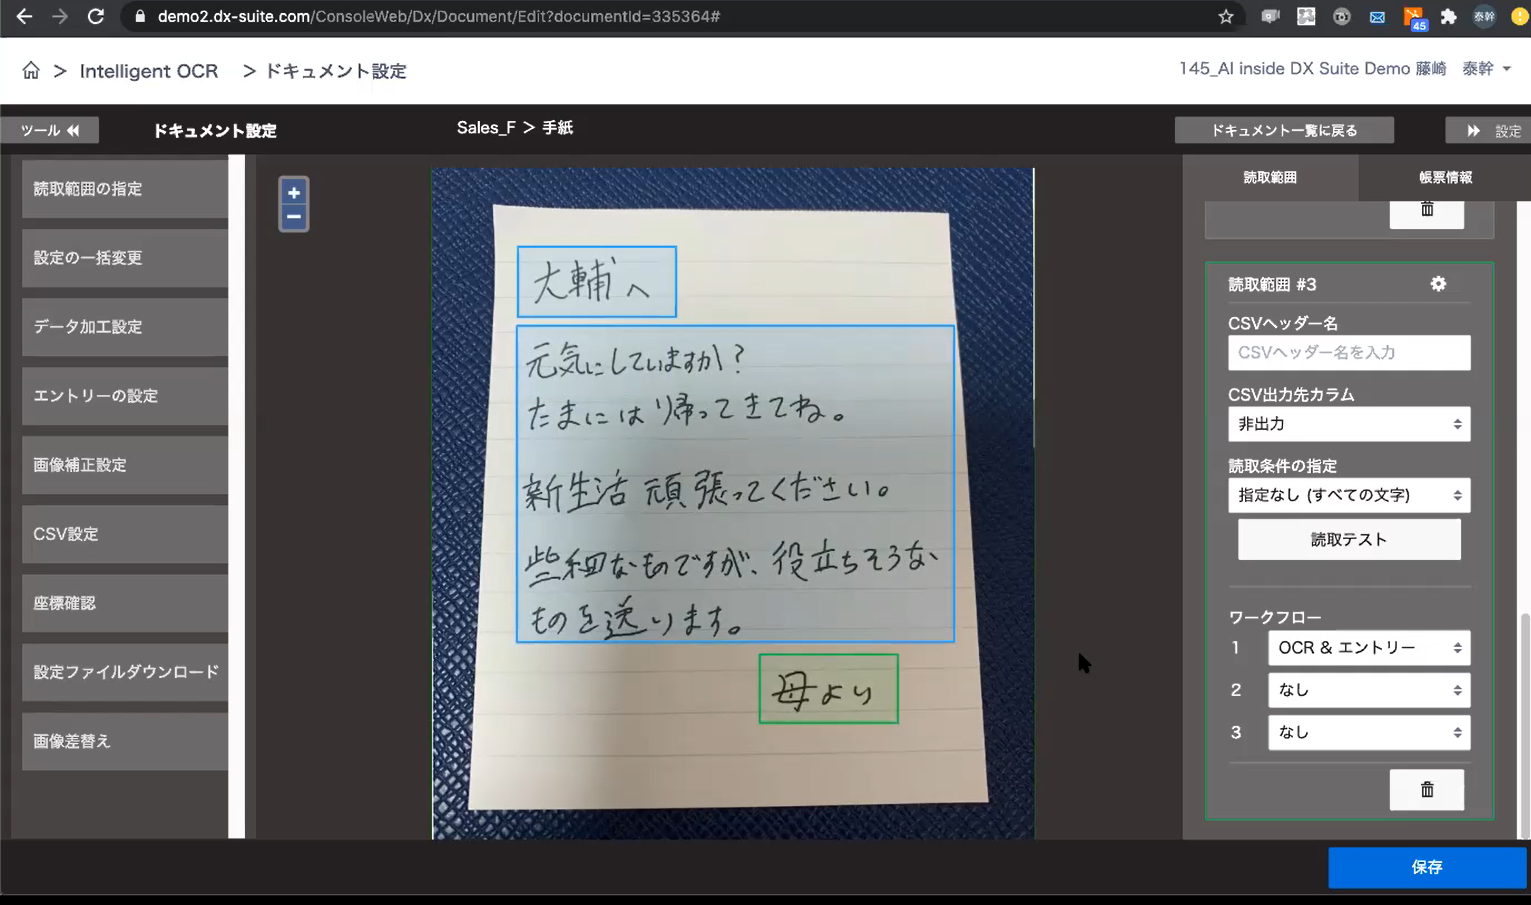 demo2.dx-suite.com/ConsoleWeb/Dx/Document/Edit?documentId=335364#
45
泰幹
Intelligent OCR > ドキュメント設定
145_AI inside DX Suite Demo 藤崎 泰幹
ツール
ドキュメント設定
Sales_F > 手紙
ドキュメント一覧に戻る
設定
読取範囲の指定
設定の一括変更
データ加工設定
エントリーの設定
画像補正設定
CSV設定
座標確認
設定ファイルダウンロード
画像差替え
+
−
大輔へ
元気にしていますか?
たまには帰ってきてね。
新生活 頑張ってください。
些細なものですが、役立ちそうな
ものを送ります。
母より
読取範囲
帳票情報
読取範囲 #3
CSVヘッダー名
CSVヘッダー名を入力
CSV出力先カラム
非出力
読取条件の指定
指定なし (すべての文字)
読取テスト
ワークフロー
1 OCR & エントリー
2 なし
3 なし
保存